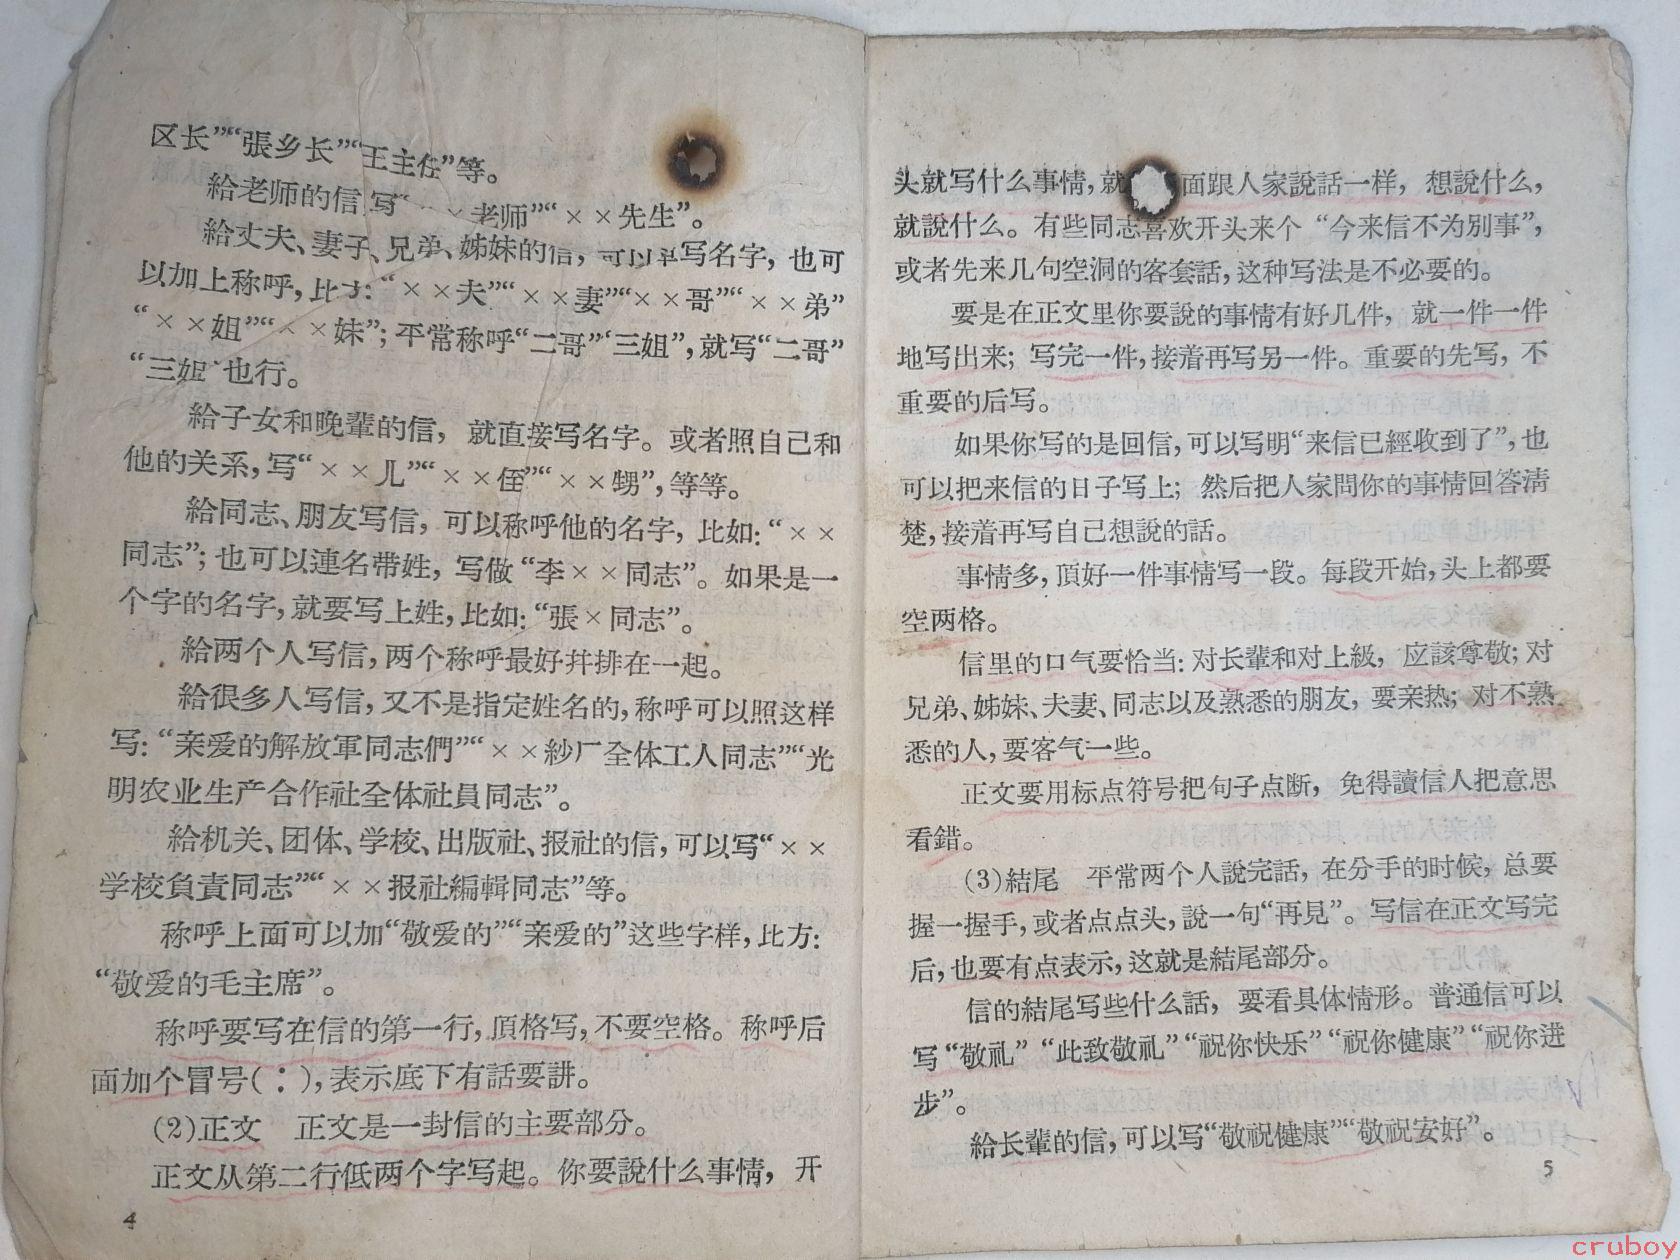 区长”“張乡长”“王主任”等。
給老师的信，写“××老师”“××先生”。
給丈夫、妻子、兄弟、姊妹的信，可以单写名字，也可
以加上称呼，比方：“××夫”“××妻”“××哥”“××弟”
“××姐”“××妹”；平常称呼“二哥”“三姐”，就写“二哥”
“三姐”也行。
給子女和晚輩的信，就直接写名字。或者照自己和
他的关系，写“××儿”“××侄”“××甥”，等等。
給同志、朋友写信，可以称呼他的名字，比如：“××
同志”；也可以連名带姓，写做“李××同志”。如果是一
个字的名字，就要写上姓，比如：“張×同志”。
給两个人写信，两个称呼最好幷排在一起。
給很多人写信，又不是指定姓名的，称呼可以照这样
写：“亲爱的解放軍同志們”“××紗厂全体工人同志”“光
明农业生产合作社全体社員同志”。
給机关、团体、学校、出版社、报社的信，可以写“××
学校負責同志”“××报社編輯同志”等。
称呼上面可以加“敬爱的”“亲爱的”这些字样，比方：
“敬爱的毛主席”。
称呼要写在信的第一行，頂格写，不要空格。称呼后
面加个冒号（：），表示底下有話要講。
(2)正文　正文是一封信的主要部分。
正文从第二行低两个字写起。你要說什么事情，开
4
头就写什么事情，就面跟人家說話一样，想說什么，
就說什么。有些同志喜欢开头来个“今来信不为別事”，
或者先来几句空洞的客套話，这种写法是不必要的。
要是在正文里你要說的事情有好几件，就一件一件
地写出来；写完一件，接着再写另一件。重要的先写，不
重要的后写。
如果你写的是回信，可以写明“来信已經收到了”，也
可以把来信的日子写上；然后把人家問你的事情回答清
楚，接着再写自己想說的話。
事情多，頂好一件事情写一段。每段开始，头上都要
空两格。
信里的口气要恰当：对长輩和对上級，应該尊敬；对
兄弟、姊妹、夫妻、同志以及熟悉的朋友，要亲热；对不熟
悉的人，要客气一些。
正文要用标点符号把句子点断，免得讀信人把意思
看錯。
(3)結尾　平常两个人說完話，在分手的时候，总要
握一握手，或者点点头，說一句“再見”。写信在正文写完
后，也要有点表示，这就是結尾部分。
信的結尾写些什么話，要看具体情形。普通信可以
写“敬礼”“此致敬礼”“祝你快乐”“祝你健康”“祝你进
步”。
給长輩的信，可以写“敬祝健康”“敬祝安好”。
5
cruboy